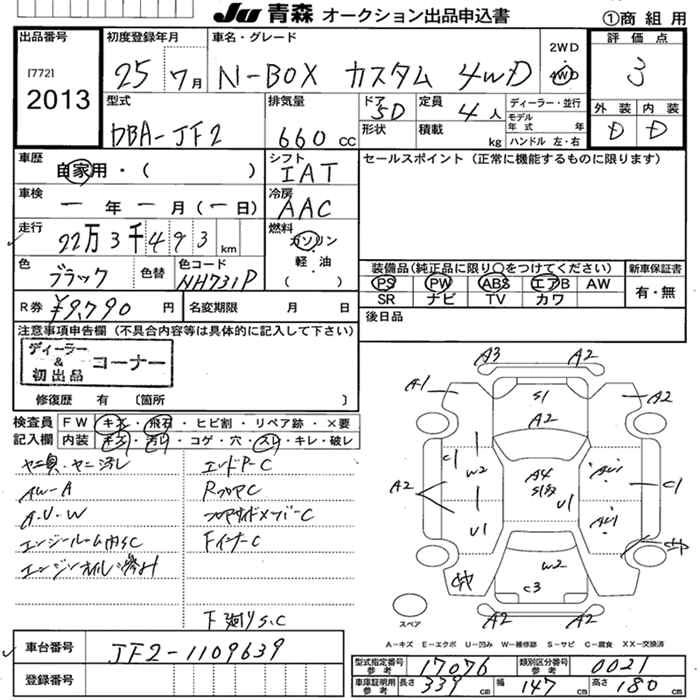 JU 青森 オークション出品申込書 ①商組用
出品番号 初度登録年月 車名・グレード 2WD 評価点
[772] 2013 25 7月 N-BOX カスタム 4WD 4WD 3
型式 排気量 ドア 5D 定員 4人 ディーラー・並行 外装 内装
DBA-JF2 660cc 形状 積載 kg モデル年式 年 ハンドル 左・右 D D
車歴 自家用・( ) シフト IAT セールスポイント (正常に機能するものに限ります)
車検 ー年ー月(ー日) 冷房 AAC
走行 22万3千493km 燃料 ガソリン 軽油 ( )
色 ブラック 色替 色コード NH731P 装備品(純正品に限り○をつけてください) 新車保証書
PS PW ABS エアB AW 有・無
R券 ¥9,790円 名変期限 月 日 SR ナビ TV カワ
注意事項申告欄 (不具合内容等は具体的に記入して下さい) 後日品
ディーラー & 初出品 コーナー
修復歴 有 〔箇所 〕
検査員 FW キズ・飛石・ヒビ割・リペア跡・×要
記入欄 内装 キズ・汚レ・コゲ・穴・スレ・キレ・破レ
ヤニ臭・ヤニ汚レ エンドP-C
AW-A RフロアC
A.U.W フロアサイドメンバーC
エンジンルーム内S.C FインナーC
エンジンオイル滲み
下廻りS.C
A3 A2
A1 S1 A2
A2
C1 W2 A4 AU1 C1
A2 U1 AU1
U1 W2
C3
A2 A2
スペア
A-キズ E-エクボ U-凹み W-補修跡 S-サビ C-腐食 XX-交換済
車台番号 JF2-1109639 型式指定番号 参考 17076 類別区分番号 参考 0021
登録番号 車庫証明用 参考 長さ 339cm 幅 147cm 高さ 180cm